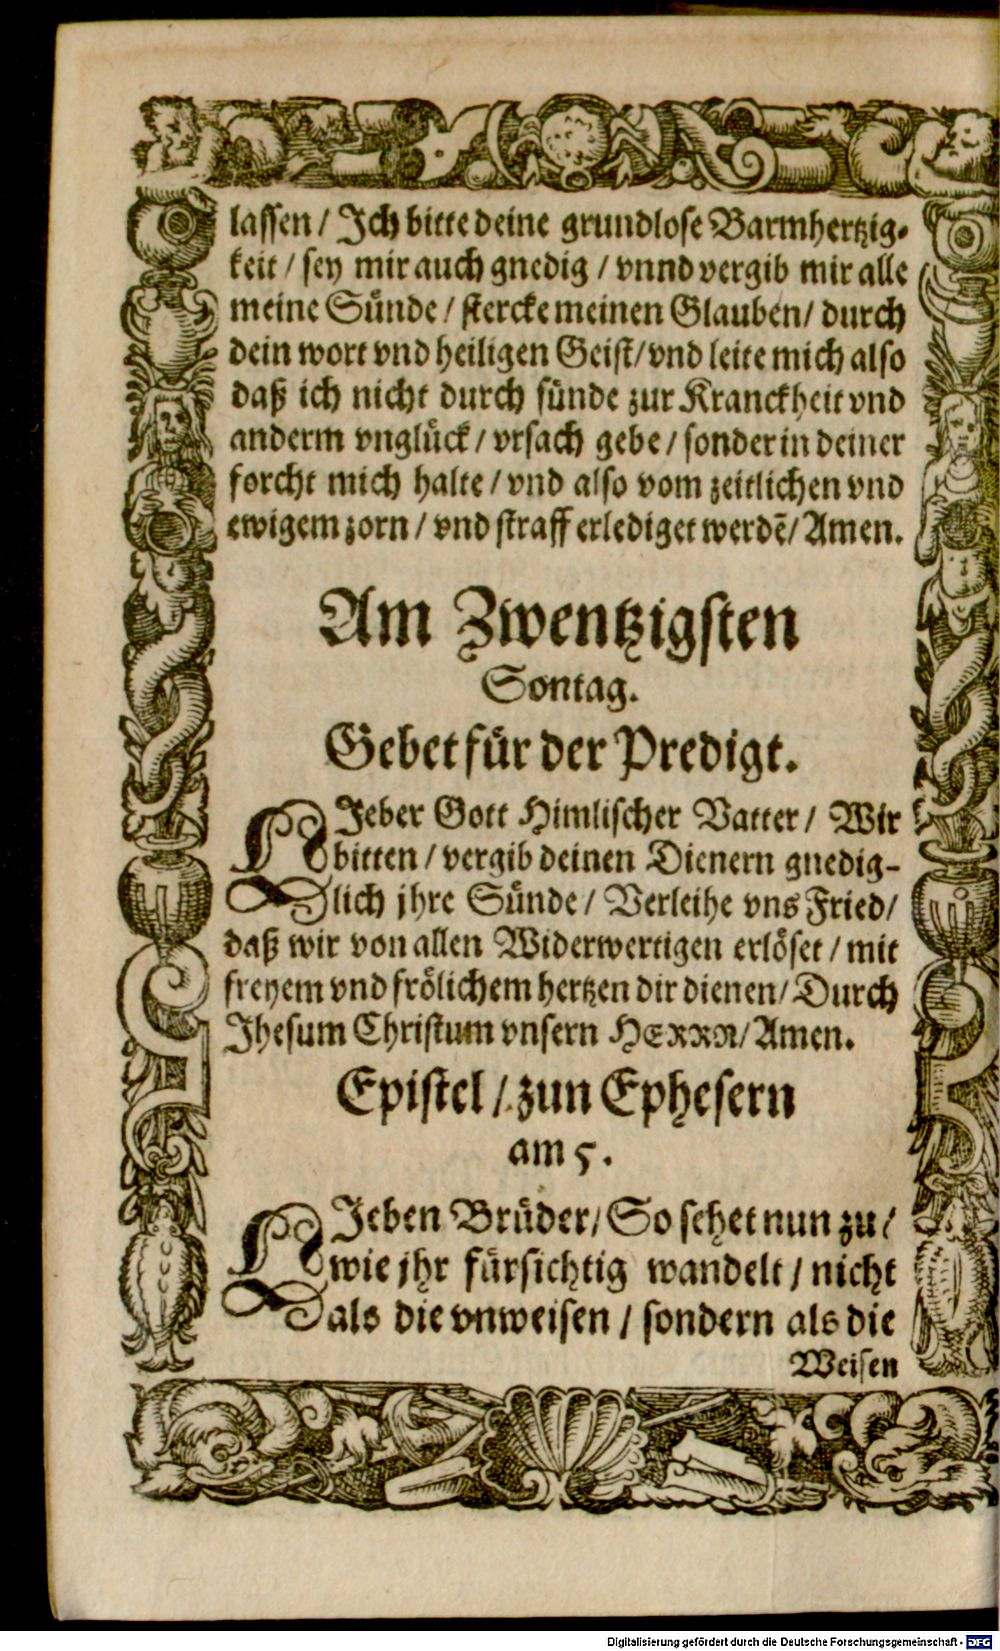 lassen / Ich bitte deine grundlose Barmhertzig-
keit / sey mir auch gnedig / vnnd vergib mir alle
meine Sünde / stercke meinen Glauben / durch
dein wort vnd heiligen Geist / vnd leite mich also
daß ich nicht durch sünde zur Kranckheit vnd
anderm vnglück / vrsach gebe / sonder in deiner
forcht mich halte / vnd also vom zeitlichen vnd
ewigem zorn / vnd straff erlediget werdē / Amen.
Am Zwentzigsten
Sontag.
Gebet für der Predigt.
LIeber Gott Himlischer Vatter / Wir
bitten / vergib deinen Dienern gnedig-
lich jhre Sünde / Verleihe vns Fried /
daß wir von allen Widerwertigen erlöset / mit
freyem vnd frölichem hertzen dir dienen / Durch
Jhesum Christum vnsern HERRN / Amen.
Epistel / zun Ephesern
am 5.
LIeben Brüder / So sehet nun zu /
wie jhr fürsichtig wandelt / nicht
als die vnweisen / sondern als die
Weisen
Digitalisierung gefördert durch die Deutsche Forschungsgemeinschaft - DFG